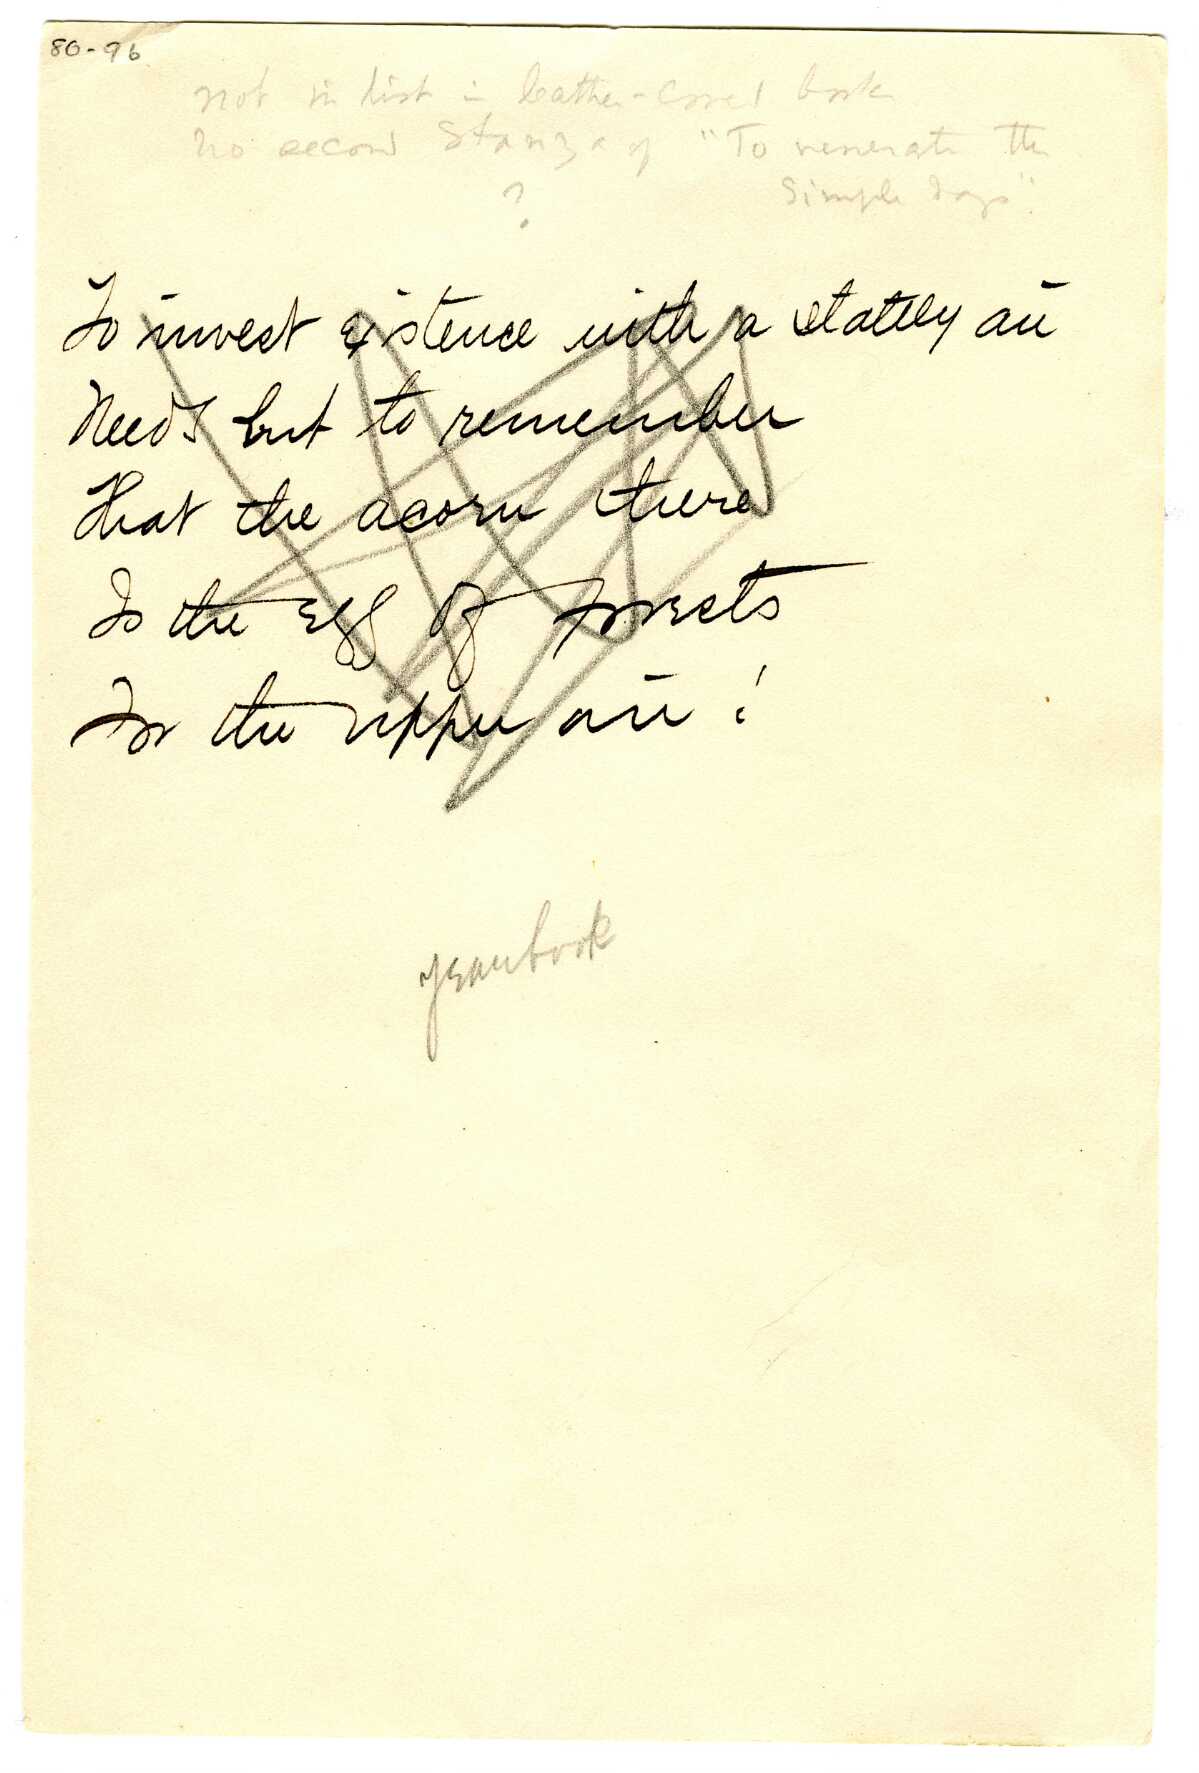 80-96
not in list in leather-cover book
no second stanza of "To venerate the
simple days"
?
To invest existence with a stately air
Needs but to remember
That the acorn there
Is the Egg of forests
For the upper air!
yearbook